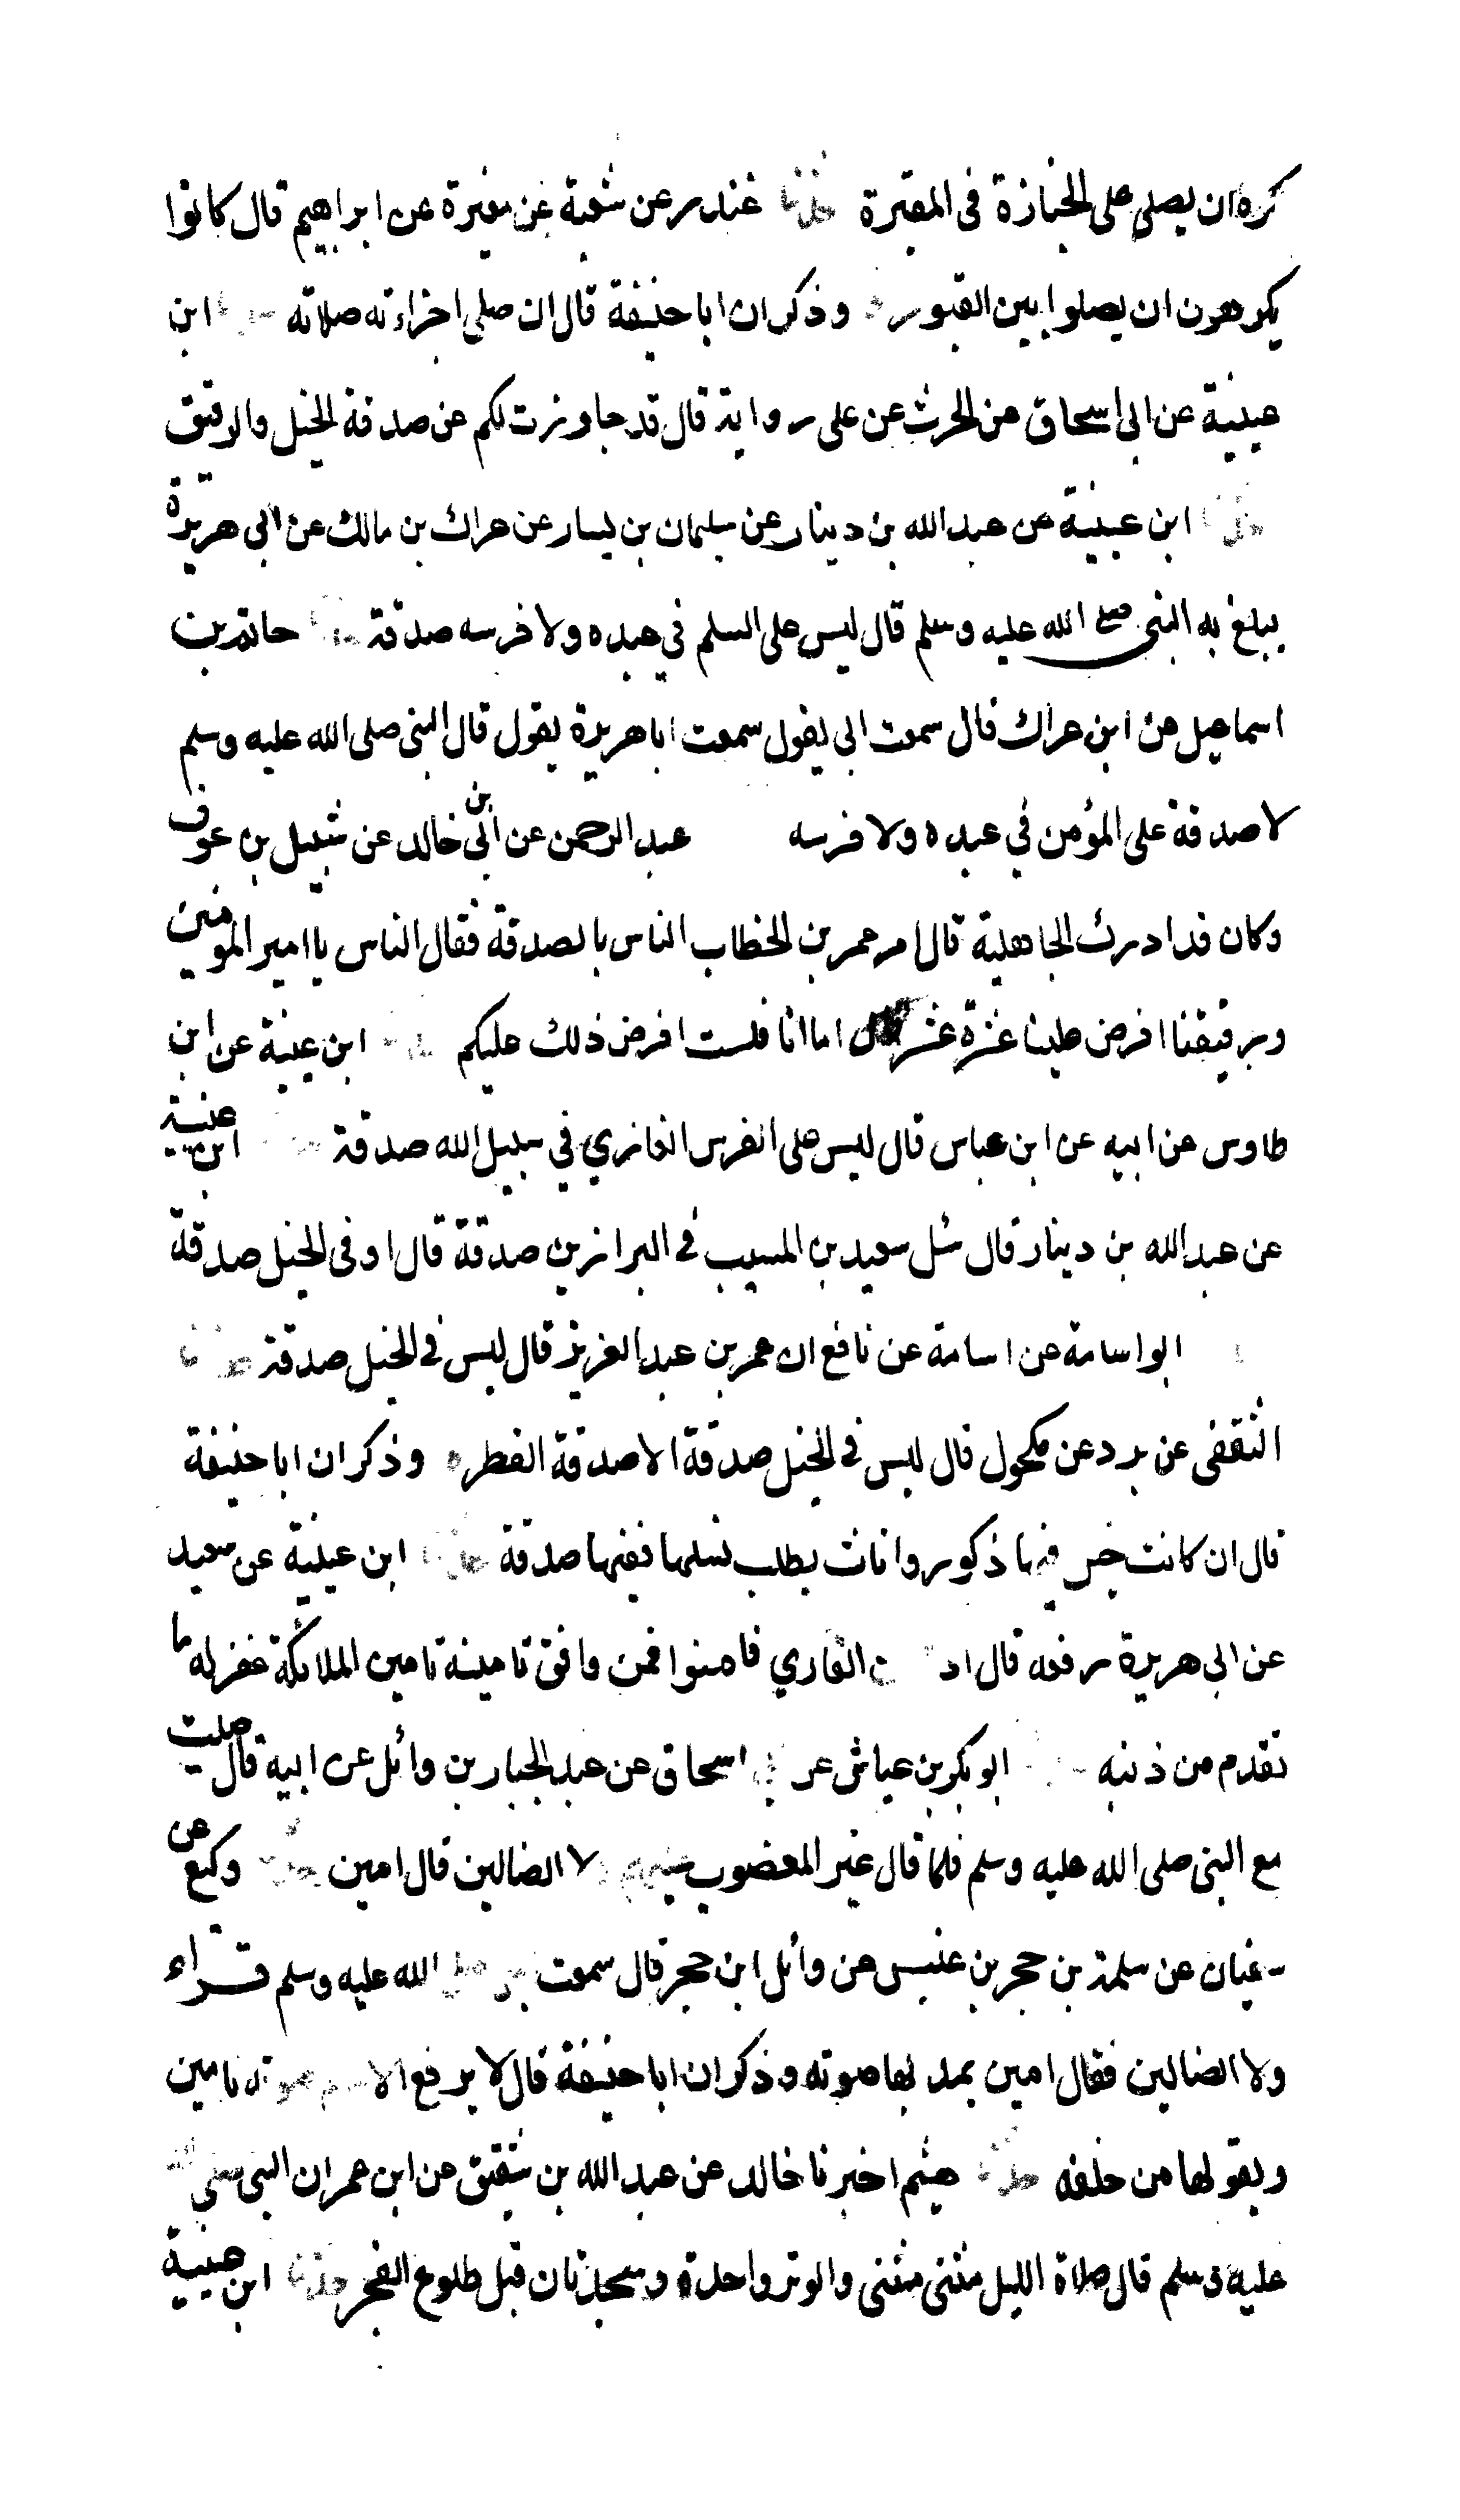 كره ان يصلى على الجنازة فى المقبرة حدثنا غندر عن شعبة عن مغيرة عن ابراهيم قال كانوا
يكرهون ان يصلوا بين القبور وذكر ان ابا حنيفة قال ان صلى اجزاءته صلاته ابن
عيينة عن ابى اسحاق عن الحرث عن على رواية قال قد جاوزت لكم عن صدقة الخيل والرقيق
ابن عيينة عن عبد الله بن دينار عن سليمان بن يسار عن عراك بن مالك عن ابي هريرة
يبلغ به النبى صلى الله عليه وسلم قال ليس على المسلم في عبده ولا فرسه صدقة حاتم بن
اسماعيل عن ابن عراك قال سمعت ابي يقول سمعت ابا هريرة يقول قال النبى صلى الله عليه وسلم
لا صدقة على المؤمن في عبده ولا فرسه عبد الرحمن عن ابن ابي خالد عن شبيل بن عوف
وكان قد ادرك الجاهلية قال امر عمر بن الخطاب الناس بالصدقة فقال الناس يا امير المومنين
ورقيقنا افرض علينا عشرة عشرة قال اما انا فلست افرض ذلك عليكم ابن عيينة عن ابن
طاوس عن ابيه عن ابن عباس قال ليس على الفرس الغازي في سبيل الله صدقة ابن عيينة
عن عبد الله بن دينار قال سئل سعيد بن المسيب في البراذين صدقة قال اوفى الخيل صدقة
ابو اسامة عن اسامة عن نافع ان عمر بن عبد العزيز قال ليس في الخيل صدقة حدثنا
الثقفى عن برد عن مكحول قال ليس في الخيل صدقة الا صدقة الفطر وذكر ان ابا حنيفة
قال ان كانت خيل فيها ذكور واناث يطلب نسلها ففيها صدقة حدثنا ابن عيينة عن سعيد
عن ابي هريرة رفعه قال اذا امن القاري فامنوا فمن وافق تامينه تامين الملائكة غفر له ما
تقدم من ذنبه ابو بكر بن عياش عن ابي اسحاق عن عبد الجبار بن وائل عن ابيه قال صليت
مع النبى صلى الله عليه وسلم فلما قال غير المغضوب عليهم ولا الضالين قال امين حدثنا وكيع عن
سفيان عن سلمة بن حجر بن عنبس عن وائل ابن حجر قال سمعت النبي صلى الله عليه وسلم قراء
ولا الضالين فقال امين يمد بها صوته وذكر ان ابا حنيفة قال لا يرفع الامام صوته بامين
ويقولها من خلفه حدثنا هشيم اخبرنا خالد عن عبد الله بن شقيق عن ابن عمر ان النبي صلى الله
عليه وسلم قال صلاة الليل مثنى مثنى والوتر واحدة وسجدتان قبل طلوع الفجر حدثنا ابن عيينة